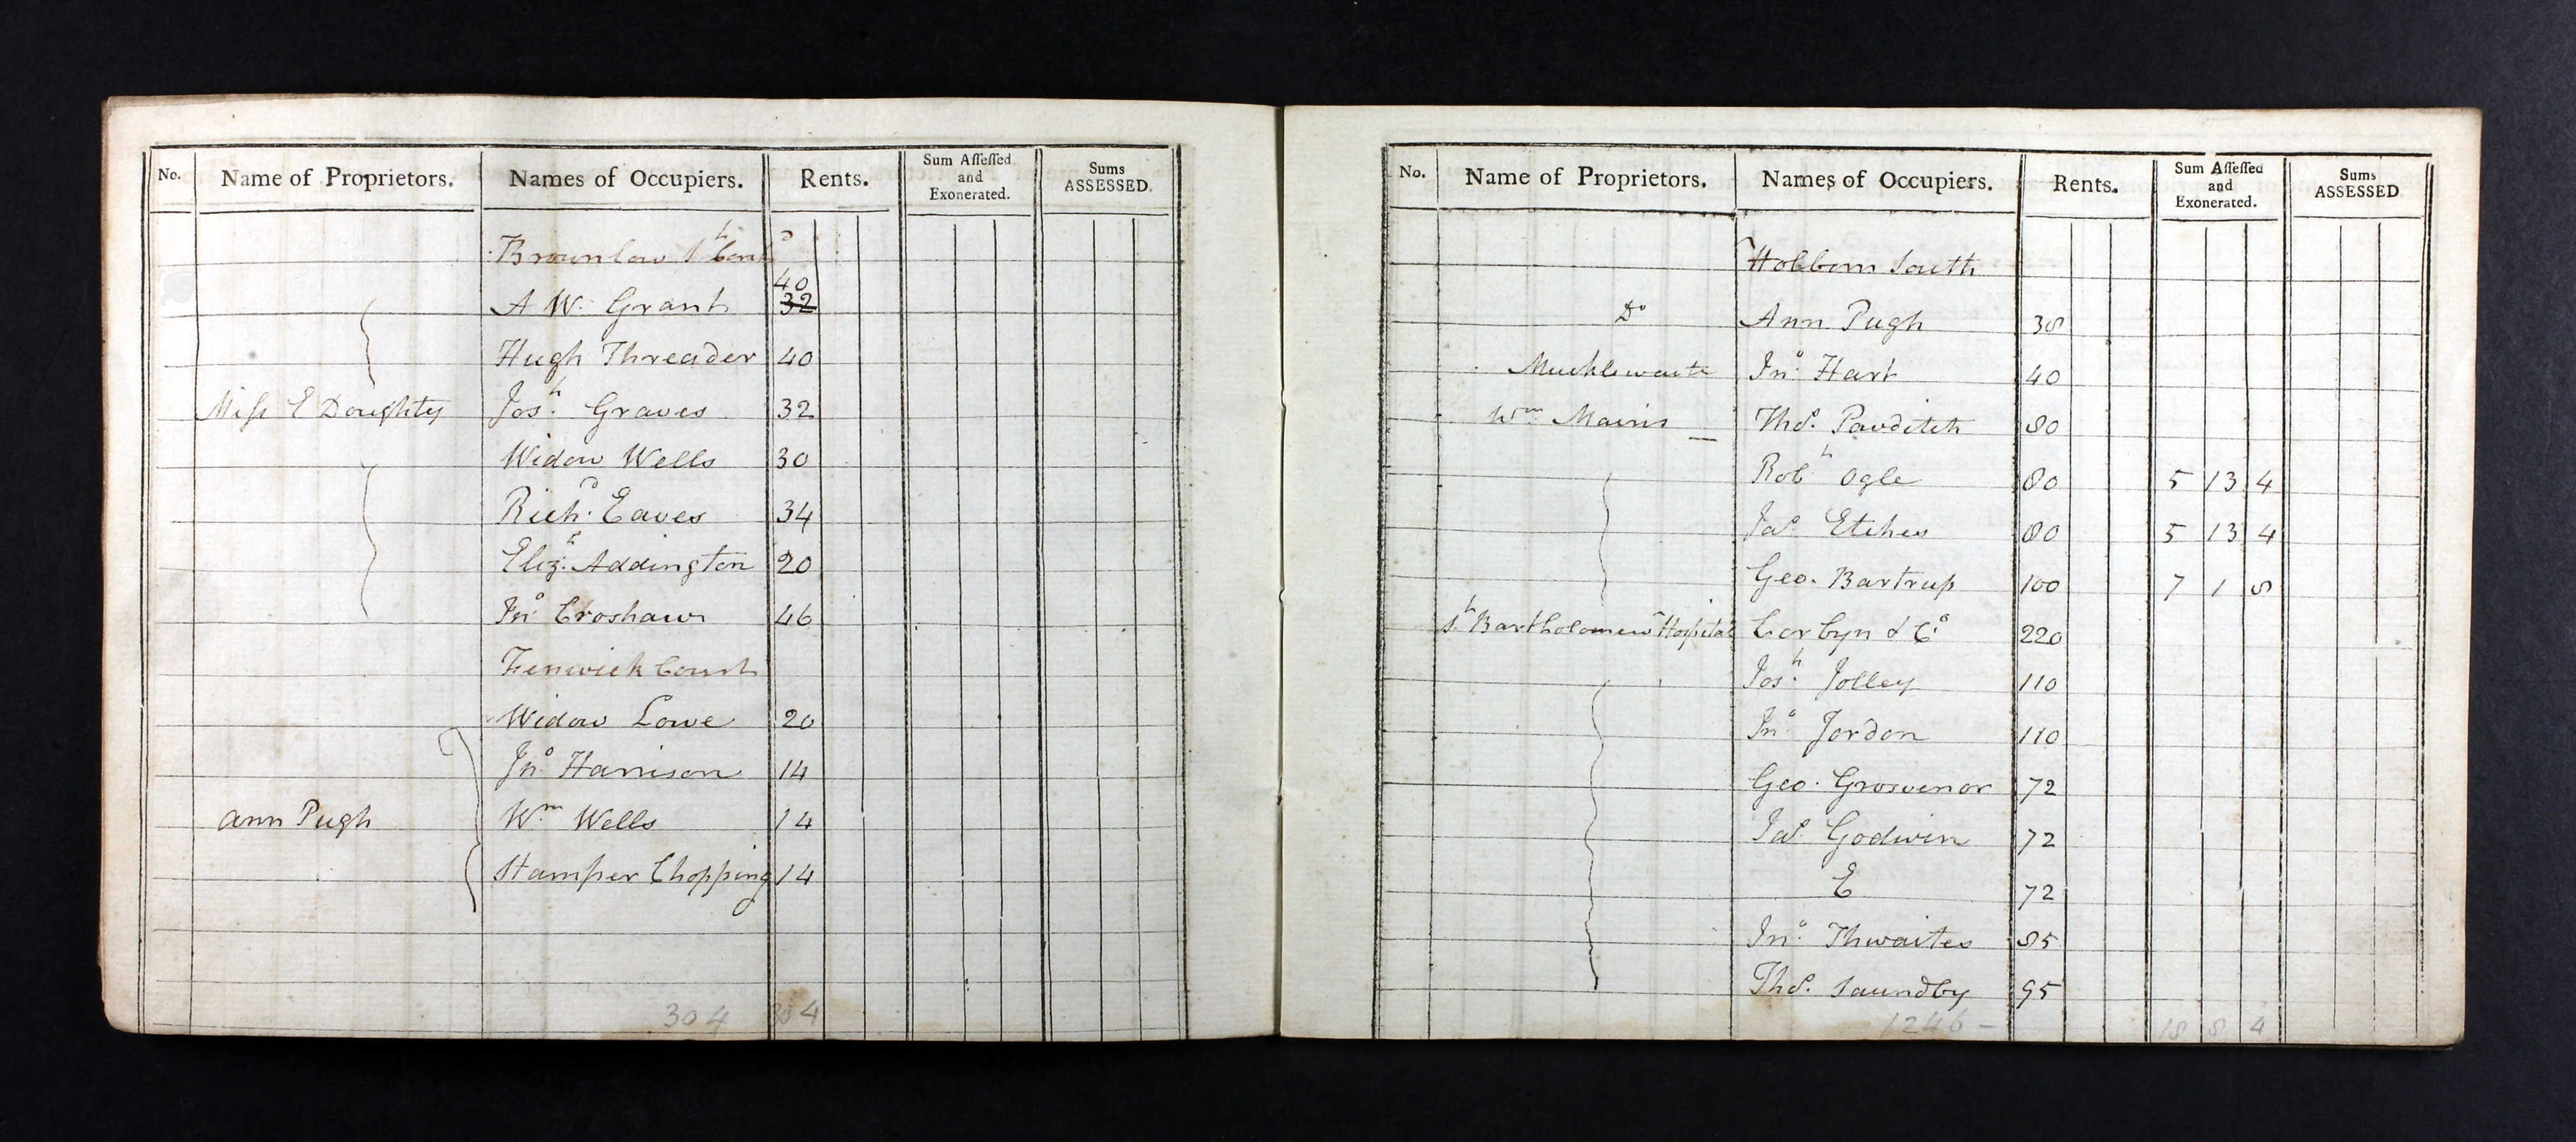 No. Name of Proprietors. Names of Occupiers. Rents. Sum Aſſeſſed and Exonerated. Sums ASSESSED.
Brownlow St Cont'd
40
A W. Grant 32
Hugh Threader 40
Miſs E Doughty Josh. Graves 32
Widow Wells 30
Richd. Eaves 34
Elizh. Addington 20
Jno. Croshaw 46
Fenwick Court
Widow Lowe 20
Jno. Harrison 14
Ann Pugh Wm. Wells 14
Stamper Chopping 14
304 304
No. Name of Proprietors. Names of Occupiers. Rents. Sum Aſſeſſed and Exonerated. Sums ASSESSED
Holborn South
Do Ann Pugh 38
Mucklewaite Jno. Hart 40
Wm. Mairis Thos. Pavditch 80
Robt Ogle 80 5 13 4
Jas. Etches 80 5 13 4
Geo. Bartrup 100 7 1 8
St Bartholomew Hospital Corbyn & Co. 220
Josh. Jolley 110
Jno. Jordon 110
Geo. Grosvenor 72
Jas. Godwin 72
E 72
Jno. Thwaites 85
Thos. Saundby 95
1246 - 18 8 4